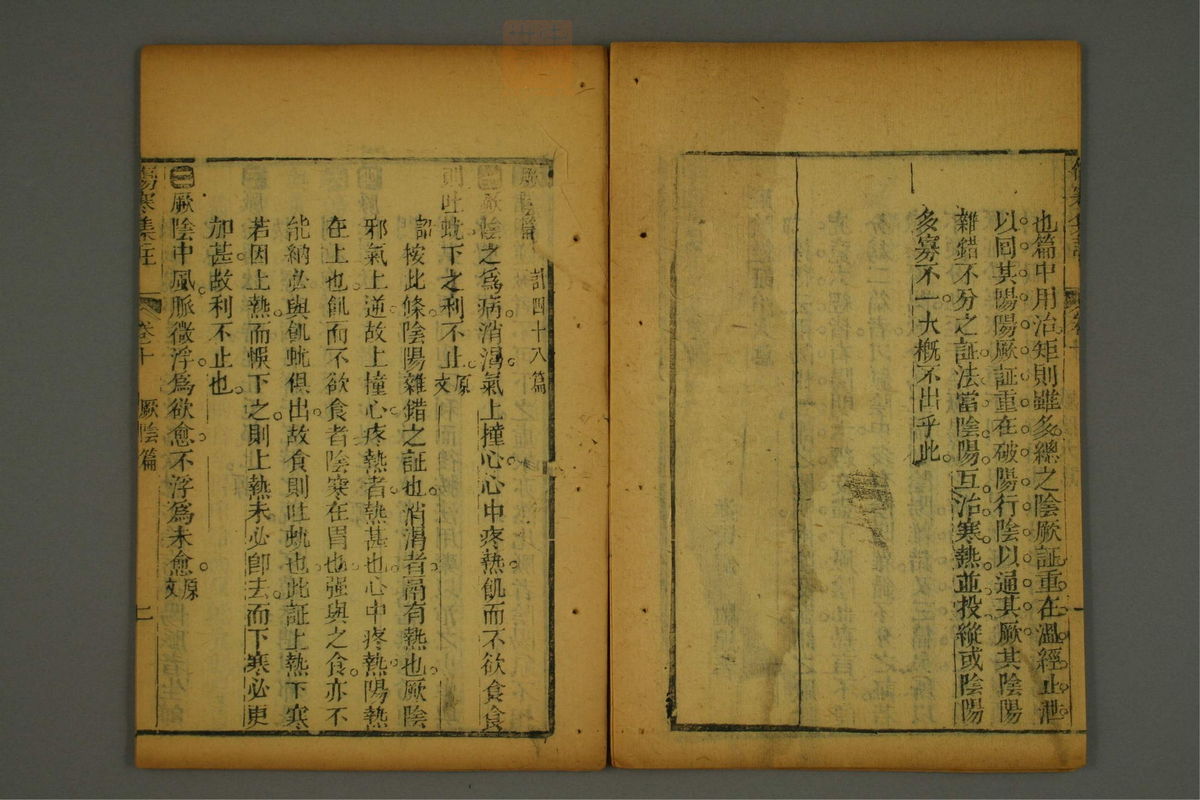 也篇中用治矩則雖多總之陰厥証重在溫經止泄
以回其陽陽厥証重在破陽行陰以通其厥其陰陽
雜錯不分之証法當陰陽互治寒熱並投縱或陰陽
多寡不一大槪不出乎此
厥陰篇 計四十八篇
一 厥陰之為病消渴氣上撞心心中疼熱飢而不欲食食
則吐蚘下之利不止 原文
詔 按此條陰陽雜錯之証也消渴者鬲有熱也厥陰
邪氣上逆故上撞心疼熱者熱甚也心中疼熱陽熱
在上也飢而不欲食者陰寒在胃也强與之食亦不
能納必與飢蚘俱出故食則吐蚘也此証上熱下寒
若因上熱而悞下之則上熱未必卽去而下寒必更
加甚故利不止也
二 厥陰中風脈微浮為欲愈不浮為未愈 原文
傷寒集註 卷十 厥陰篇 二